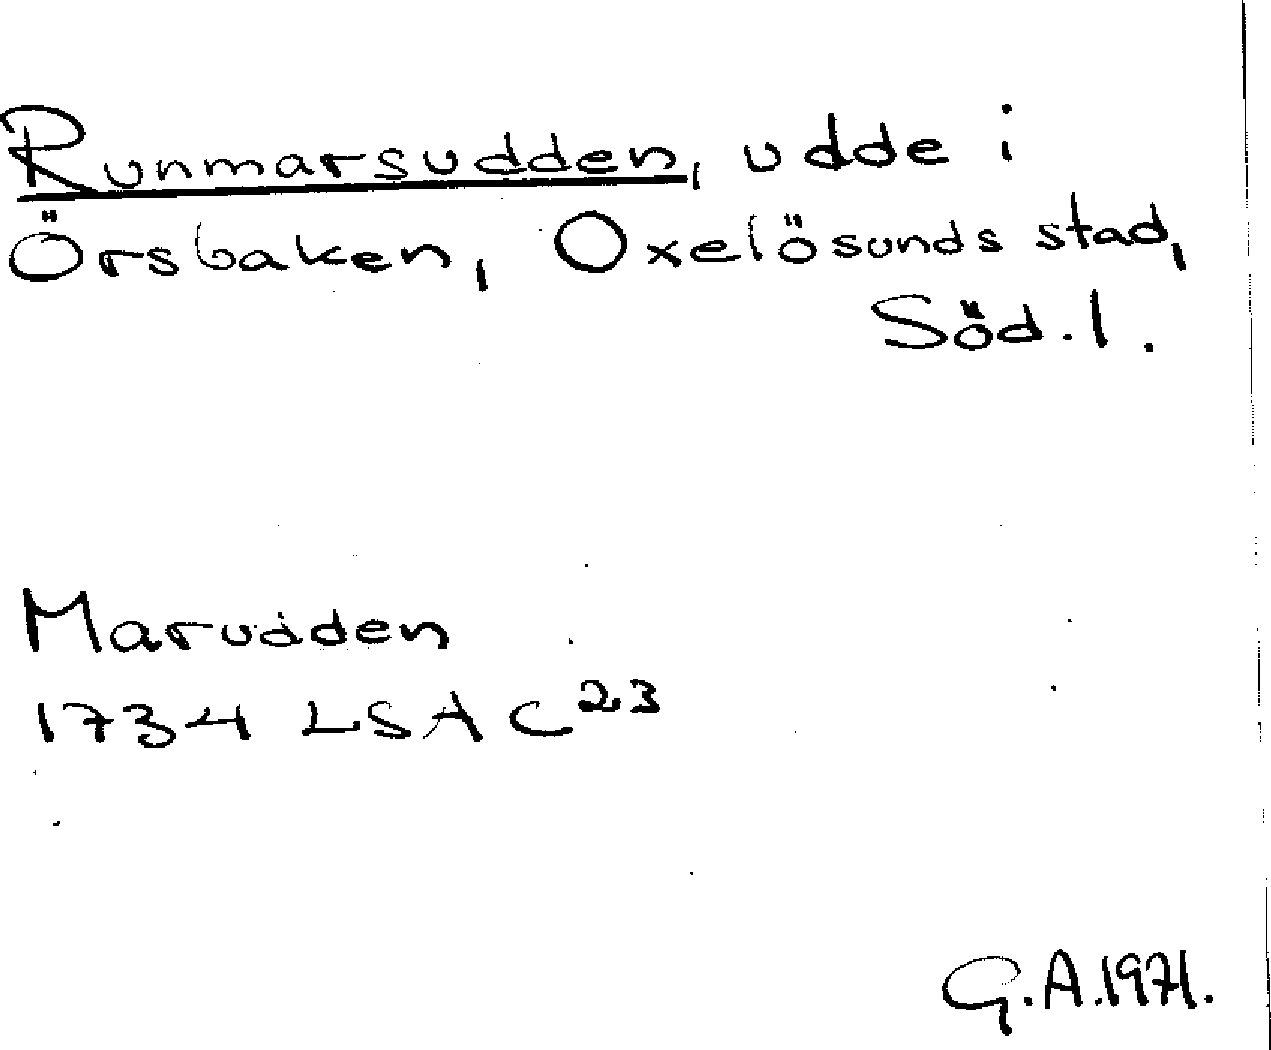 Runmarsudden, udde i
Örsbaken, Oxelösunds stad,
Söd. l.
Marudden
1734 LSA C23
G.A. 1971.